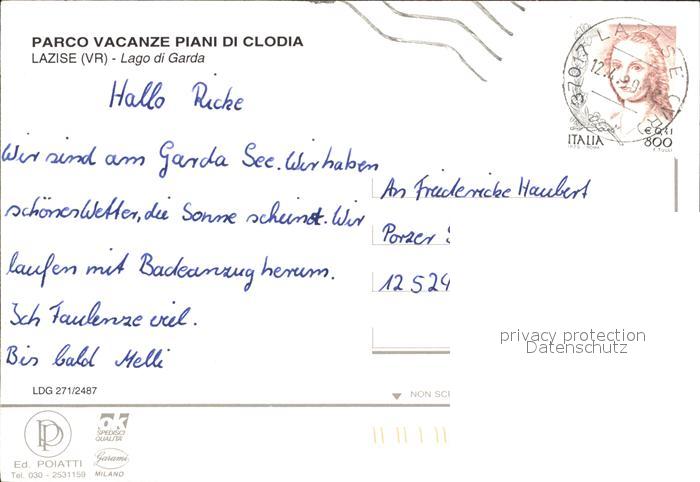 PARCO VACANZE PIANI DI CLODIA
LAZISE (VR) - Lago di Garda
Hallo Ricke
Wir sind am Garda See. Wir haben
schönes Wetter, die Sonne scheint. Wir
laufen mit Badeanzug herum.
Ich Faulenze viel.
Bis bald Melli
LDG 271/2487
An Friedericke Haubert
Porzer
12524
37017 LAZISE
12.4.
€ 0,41
ITALIA 800
privacy protection
Datenschutz
NON SC
Ed. POIATTI
Tel. 030 - 2531159
OK
SPEDISCI
QUALITÀ
Garami
MILANO